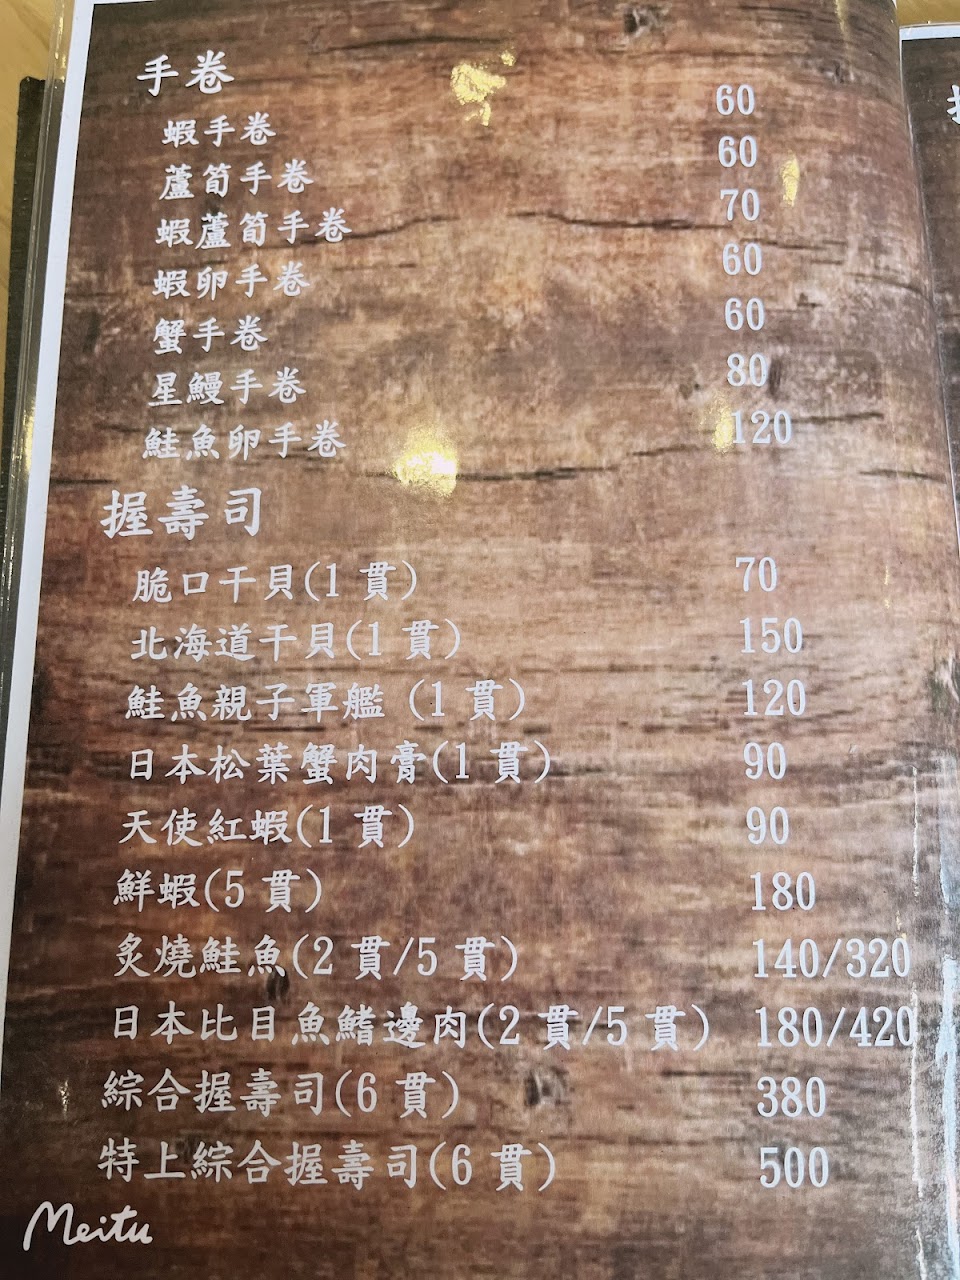 手卷
蝦手卷 60
蘆筍手卷 60
蝦蘆筍手卷 70
蝦卵手卷 60
蟹手卷 60
星鰻手卷 80
鮭魚卵手卷 120
握壽司
脆口干貝(1 貫) 70
北海道干貝(1 貫) 150
鮭魚親子軍艦 (1 貫) 120
日本松葉蟹肉膏(1 貫) 90
天使紅蝦(1 貫) 90
鮮蝦(5 貫) 180
炙燒鮭魚(2 貫/5 貫) 140/320
日本比目魚鰭邊肉(2 貫/5 貫) 180/420
綜合握壽司(6 貫) 380
特上綜合握壽司(6 貫) 500
Meitu